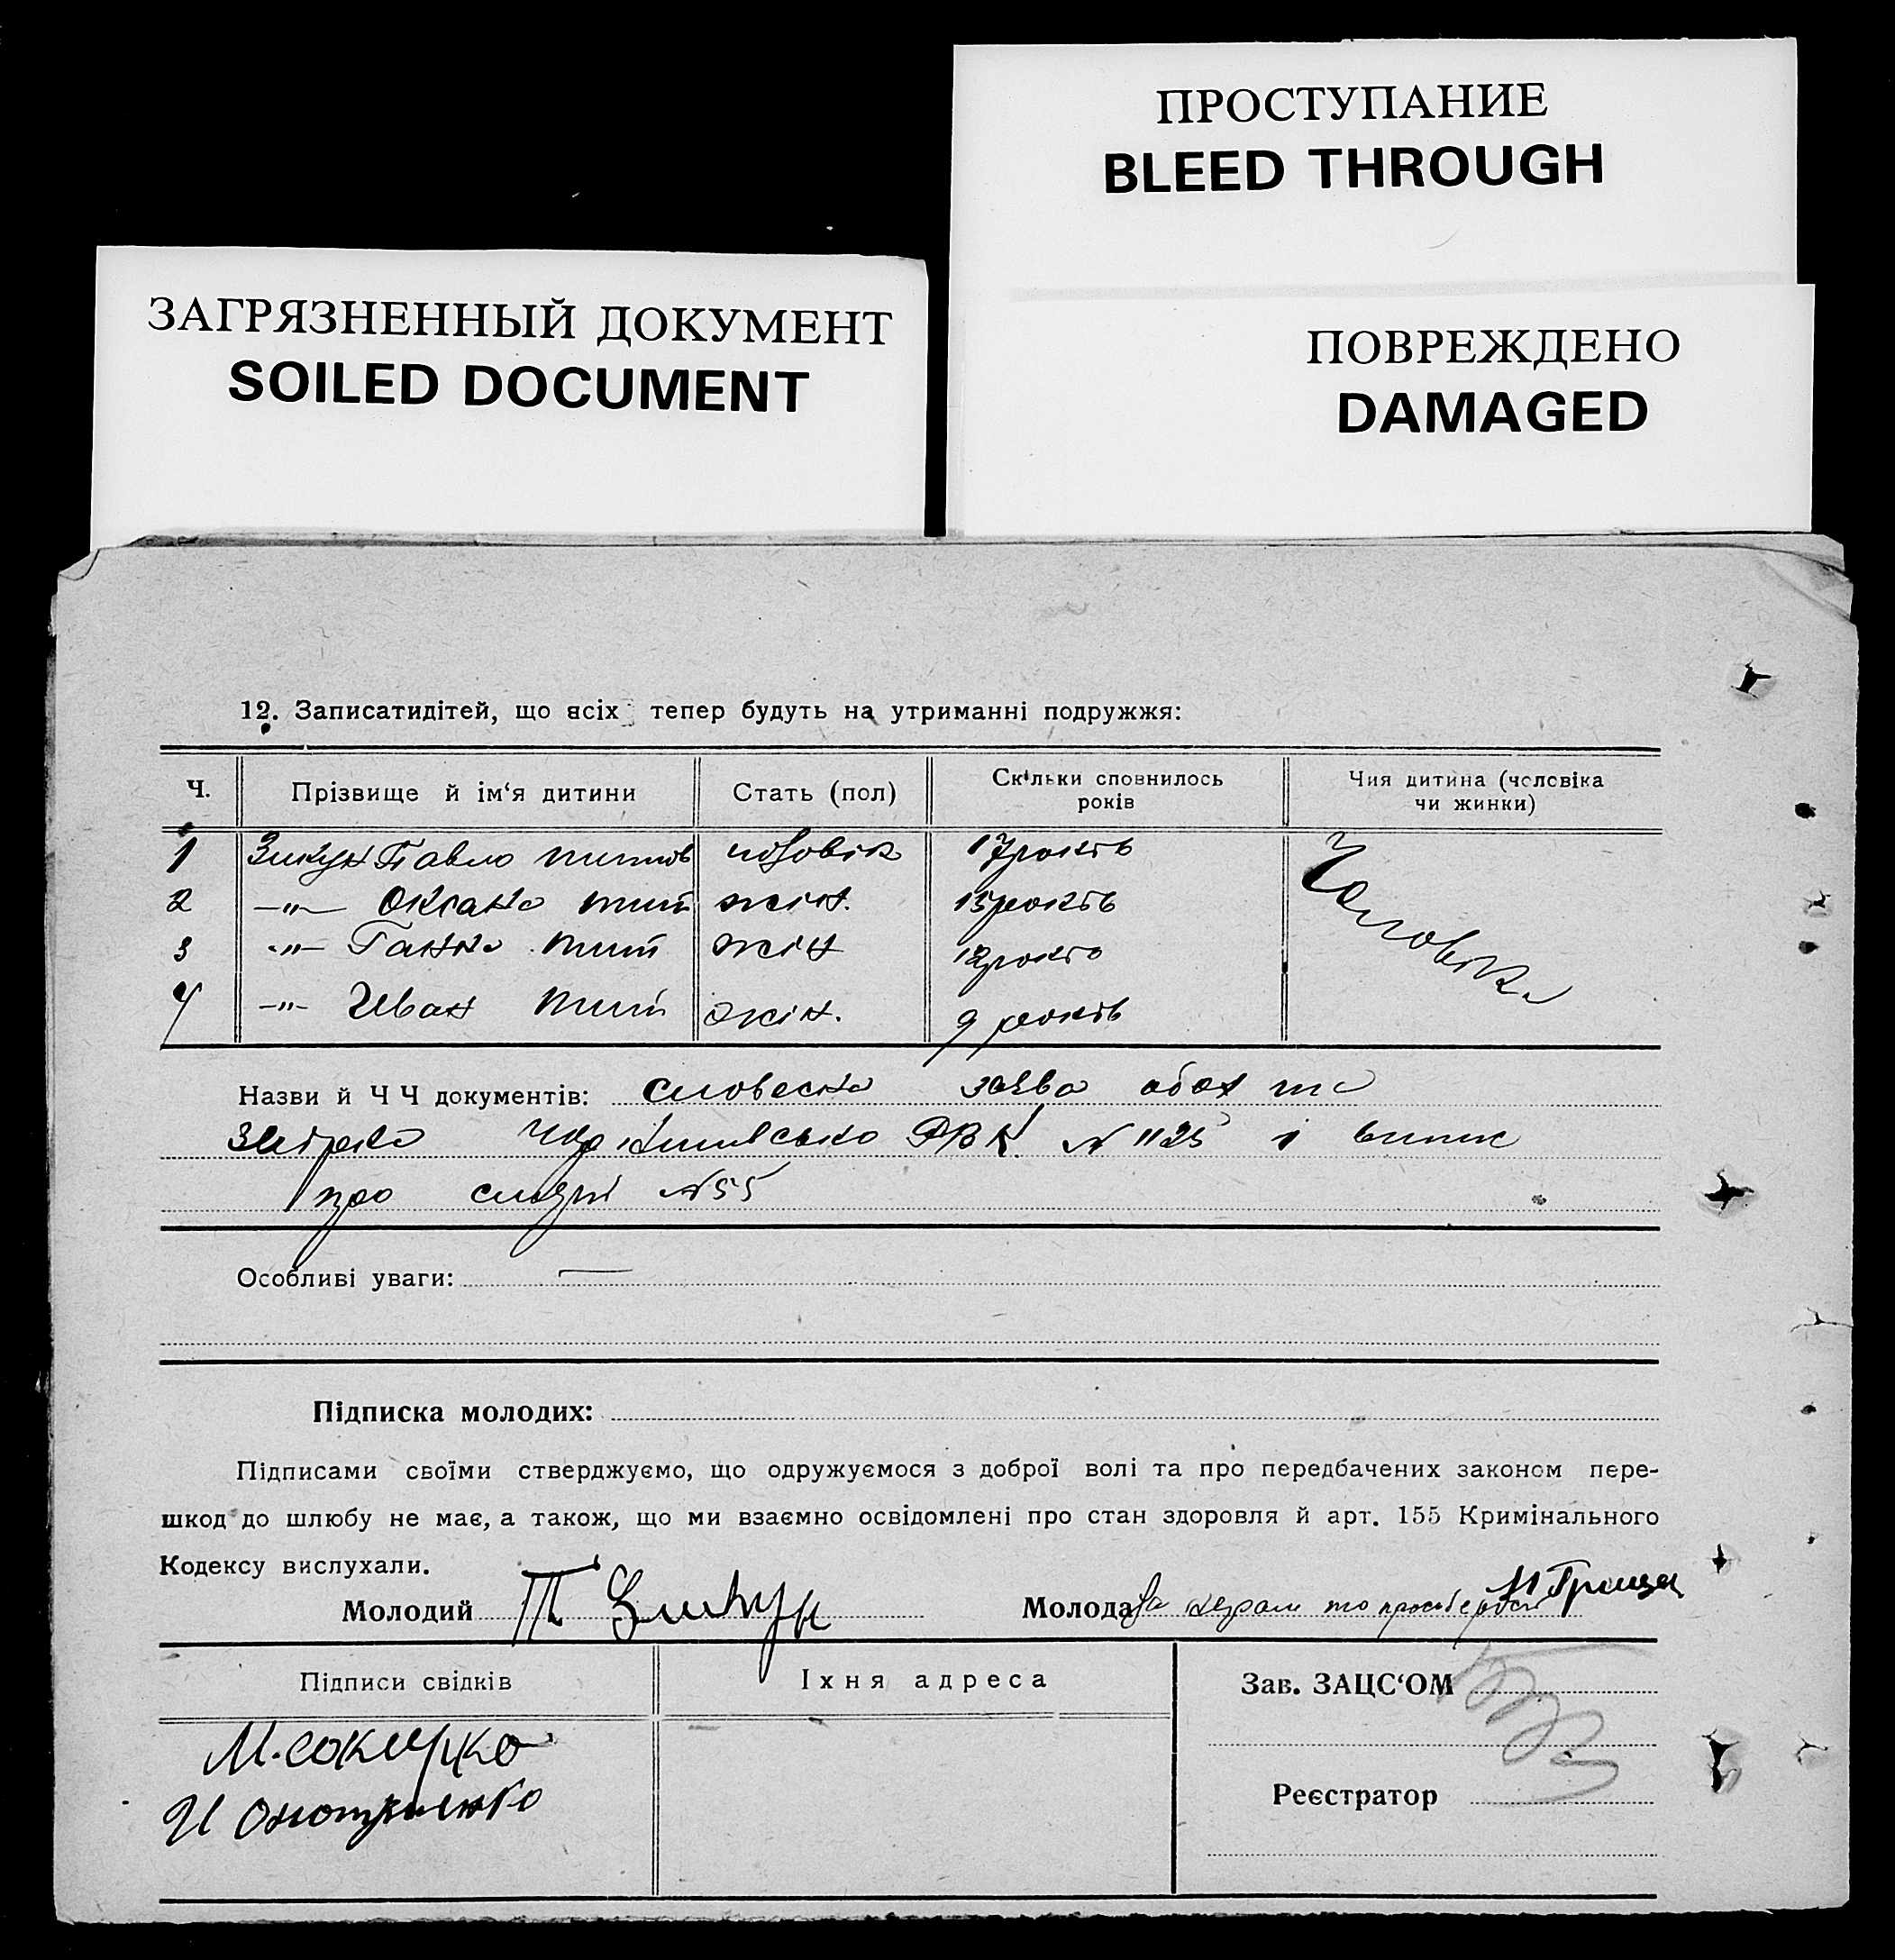 ПРОСТУПАНИЕ
BLEED THROUGH
ЗАГРЯЗНЕННЫЙ ДОКУМЕНТ
SOILED DOCUMENT
ПОВРЕЖДЕНО
DAMAGED
12. Записатидітей, що всіх тепер будуть на утриманні подружжя:
Ч. Прізвище й ім'я дитини Стать (пол) Скільки сповнилось років Чия дитина (чоловіка чи жинки)
1 Зикун Павло чоловік 17 років Чоловіка
2 -"- Оксана тит жін. 15 років
3 -"- Ганна тит жін 12 років
4 -"- Иван тит жін. 9 років
Назви й Ч Ч документів: словесна заява обох та
РВК. N 1125 і випис
про N 55
Особливі уваги: —
Підписка молодих:
Підписами своїми стверджуємо, що одружуємося з доброї волі та про передбачених законом пере-
шкод до шлюбу не має, а також, що ми взаємно освідомлені про стан здоровля й арт. 155 Кримінального
Кодексу вислухали.
Молодий Т Зикун Молода За
Підписи свідків Іхня адреса Зав. ЗАЦС'ОМ
М. Сокирко
И
Реєстратор